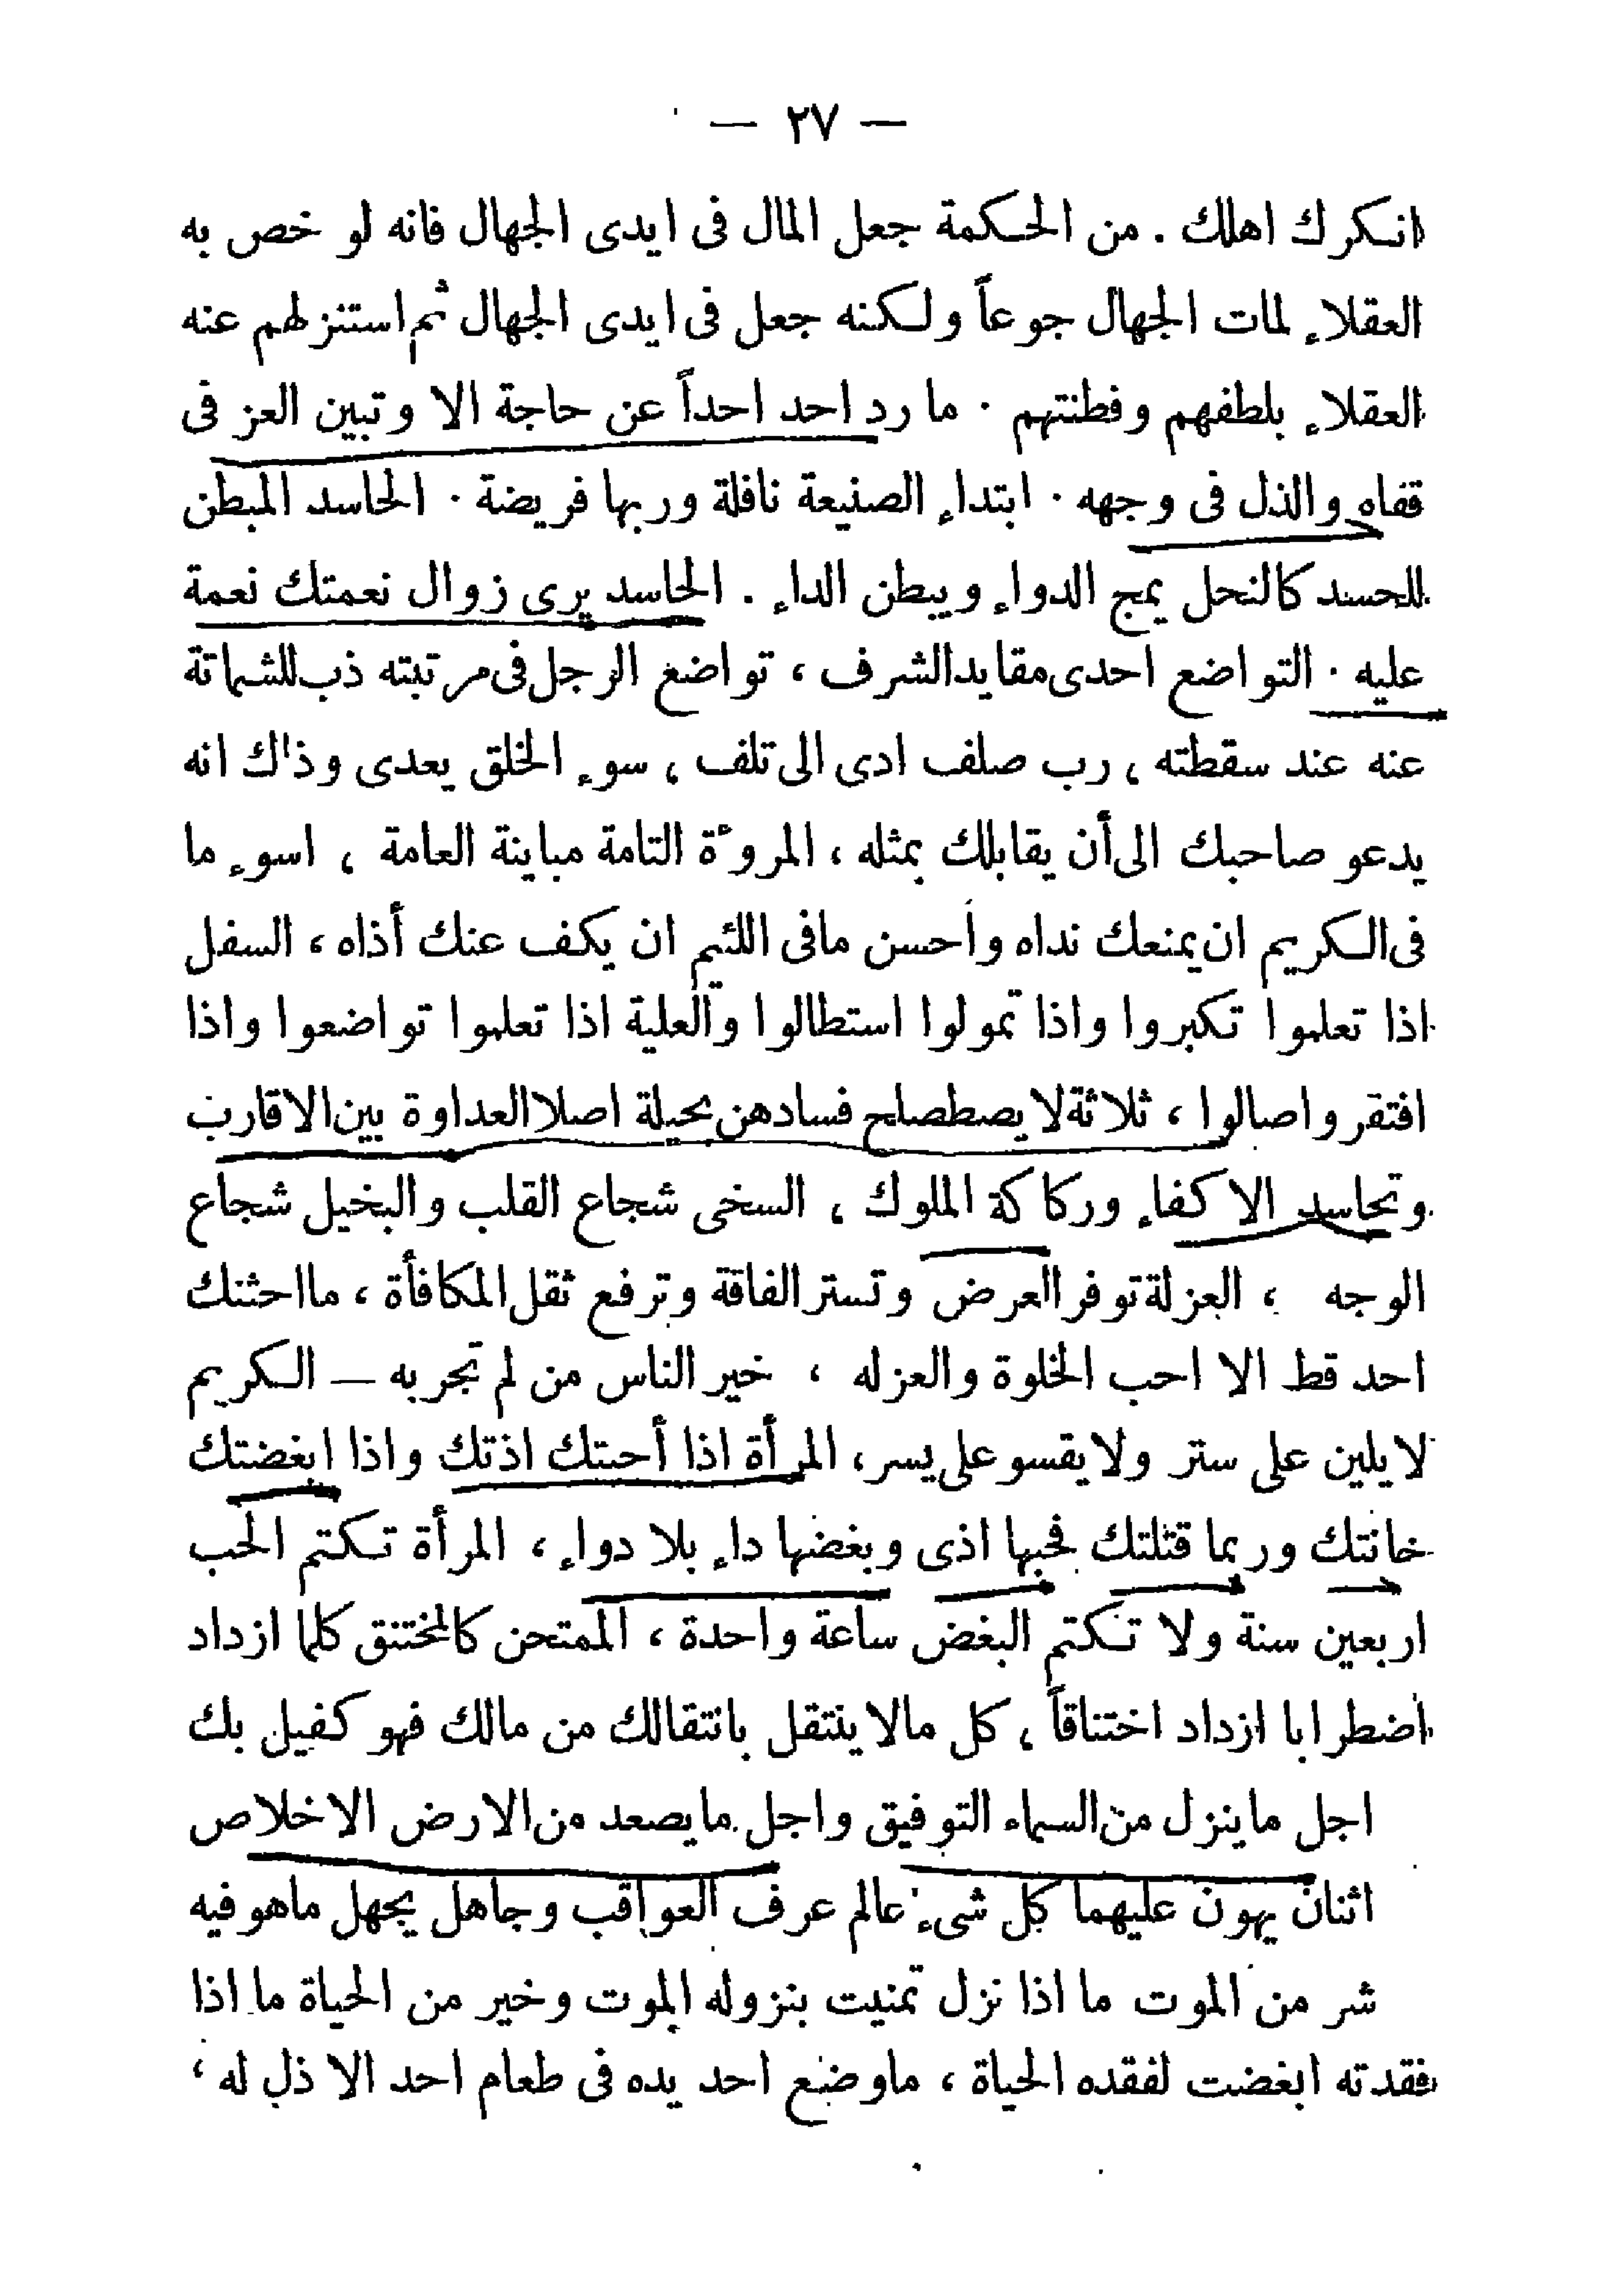 — ٢٧ —
انكرك اهلك . من الحكمة جعل المال فى ايدى الجهال فانه لو خص به
العقلاء لمات الجهال جوعاً ولكنه جعل فى ايدى الجهال ثم استنزلهم عنه
العقلاء بلطفهم وفطنتهم . ما رد احد احداً عن حاجة الا وتبين العز فى
قفاه والذل فى وجهه . ابتداء الصنيعة نافلة وربها فريضة . الحاسد المبطن
للحسد كالنحل يمج الدواء ويبطن الداء . الحاسد يرى زوال نعمتك نعمة
عليه . التواضع احدى مقايد الشرف ، تواضع الرجل فى مرتبته ذب للشماتة
عنه عند سقطته ، رب صلف ادى الى تلف ، سوء الخلق يعدى وذاك انه
يدعو صاحبك الى أن يقابلك بمثله ، المروءة التامة مباينة العامة ، اسوء ما
فى الكريم ان يمنعك نداه وأحسن مافى اللئيم ان يكف عنك أذاه ، السفل
اذا تعلموا تكبروا واذا تمولوا استطالوا والعلية اذا تعلموا تواضعوا واذا
افتقروا صالوا ، ثلاثة لا يصطصلح فسادهن بحيلة اصلا العداوة بين الاقارب
وتحاسد الاكفاء وركاكة الملوك ، السخى شجاع القلب والبخيل شجاع
الوجه ، العزلة توفر العرض وتستر الفاقة وترفع ثقل المكافأة ، ما احثنك
احد قط الا احب الخلوة والعزله ، خير الناس من لم تجربه — الكريم
لا يلين على ستر ولا يقسو على يسر ، المرأة اذا أحبتك اذتك واذا ابغضتك
خانتك وربما قتلتك فحبها اذى وبغضها داء بلا دواء ، المرأة تكتم الحب
اربعين سنة ولا تكتم البغض ساعة واحدة ، الممتحن كالمختنق كلما ازداد
اضطرابا ازداد اختناقاً ، كل مالا ينتقل بانتقالك من مالك فهو كفيل بك
اجل ما ينزل من السماء التوفيق واجل ما يصعد من الارض الاخلاص
اثنان يهون عليهما كل شىء عالم عرف العواقب وجاهل يجهل ماهو فيه
شر من الموت ما اذا نزل تمنيت بنزوله الموت وخير من الحياة ما اذا
فقدته ابغضت لفقده الحياة ، ماوضع احد يده فى طعام احد الا ذل له ،